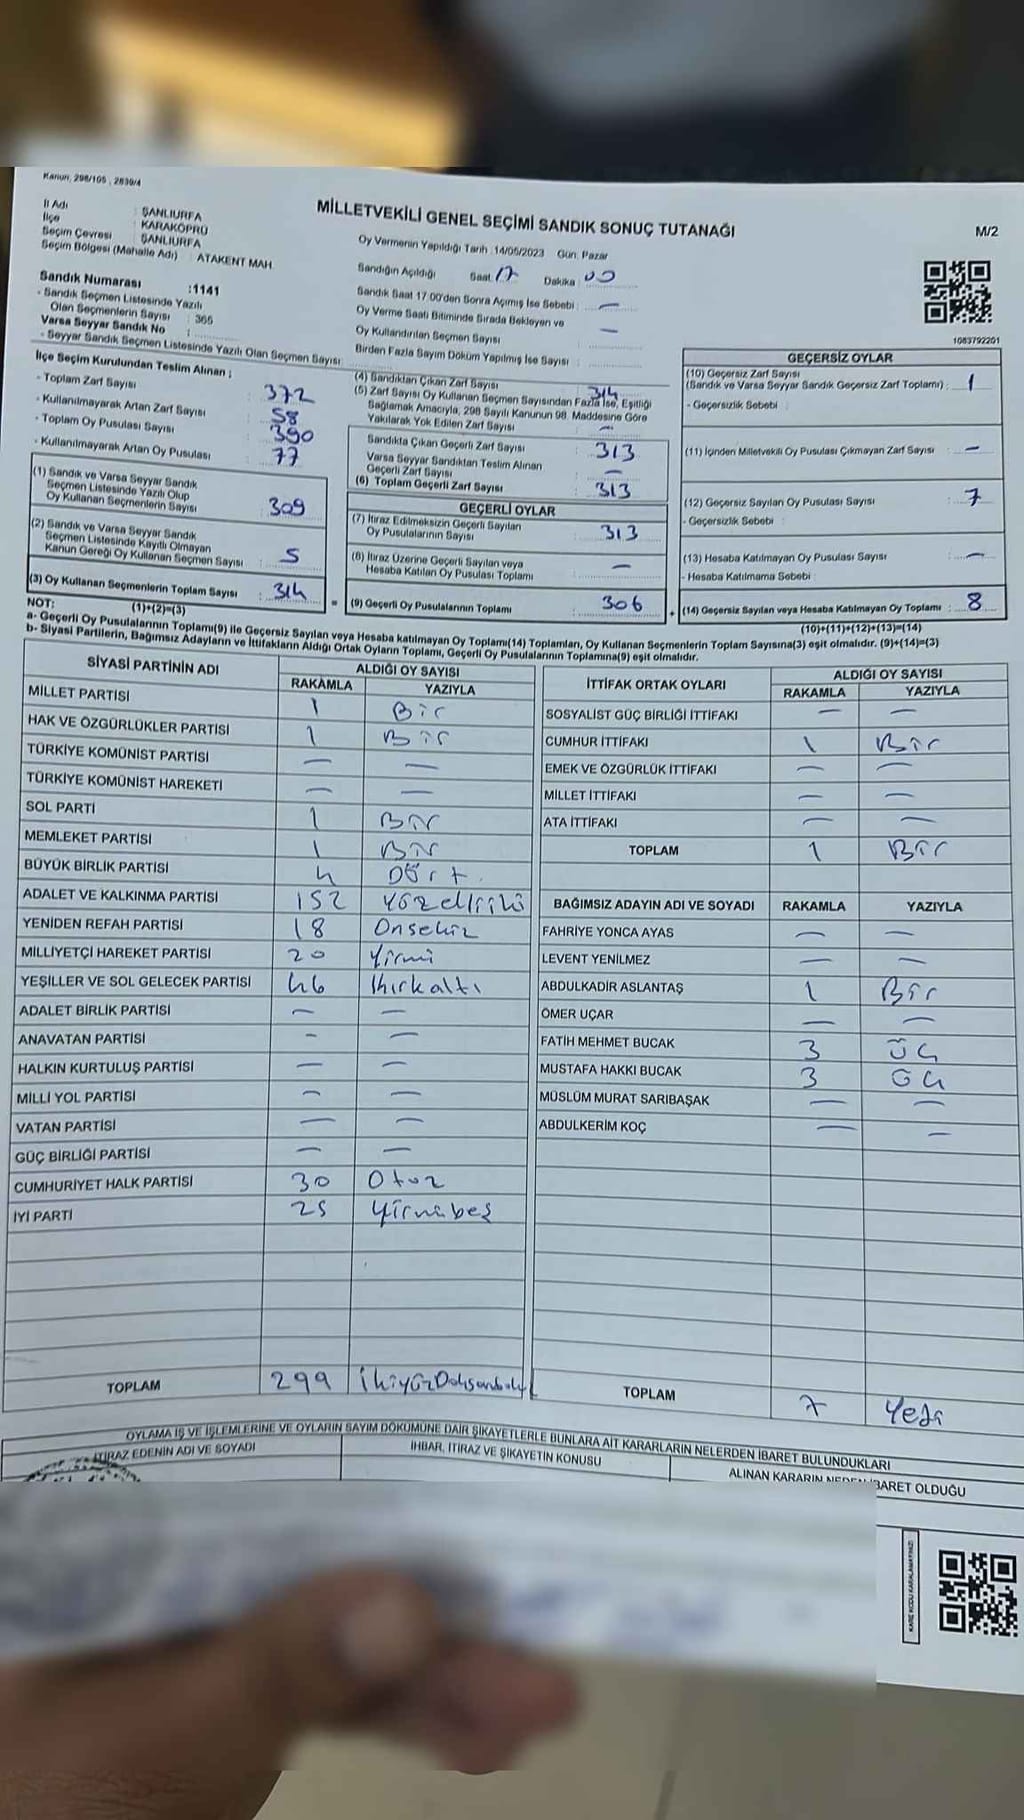 Kanun, 298/105 , 2839/4
MİLLETVEKİLİ GENEL SEÇİMİ SANDIK SONUÇ TUTANAĞI
M/2
İl Adı : ŞANLIURFA
İlçe : KARAKÖPRÜ
Seçim Çevresi : ŞANLIURFA
Seçim Bölgesi (Mahalle Adı) : ATAKENT MAH
Sandık Numarası :1141
- Sandık Seçmen Listesinde Yazılı
Olan Seçmenlerin Sayısı : 365
Varsa Seyyar Sandık No :
- Seyyar Sandık Seçmen Listesinde Yazılı Olan Seçmen Sayısı:
Oy Vermenin Yapıldığı Tarih :14/05/2023 Gün: Pazar
Sandığın Açıldığı Saat 17 Dakika 00
Sandık Saat 17:00'den Sonra Açımış İse Sebebi : —
Oy Verme Saati Bitiminde Sırada Bekleyen ve
Oy Kullandırılan Seçmen Sayısı : —
Birden Fazla Sayım Döküm Yapılmış İse Sayısı :
1083792201
İlçe Seçim Kurulundan Teslim Alınan ;
- Toplam Zarf Sayısı : 372
- Kullanılmayarak Artan Zarf Sayısı : 58
- Toplam Oy Pusulası Sayısı : 390
- Kullanılmayarak Artan Oy Pusulası : 77
(1) Sandık ve Varsa Seyyar Sandık
Seçmen Listesinde Yazılı Olup
Oy Kullanan Seçmenlerin Sayısı : 309
(2) Sandık ve Varsa Seyyar Sandık
Seçmen Listesinde Kayıtlı Olmayan
Kanun Gereği Oy Kullanan Seçmen Sayısı : 5
(3) Oy Kullanan Seçmenlerin Toplam Sayısı : 314
(1)+(2)=(3)
(4) Sandıktan Çıkan Zarf Sayısı : 314
(5) Zarf Sayısı Oy Kullanan Seçmen Sayısından Fazla İse, Eşitliği
Sağlamak Amacıyla, 298 Sayılı Kanunun 98. Maddesine Göre
Yakılarak Yok Edilen Zarf Sayısı : —
Sandıkta Çıkan Geçerli Zarf Sayısı : 313
Varsa Seyyar Sandıktan Teslim Alınan
Geçerli Zarf Sayısı : —
(6) Toplam Geçerli Zarf Sayısı : 313
GEÇERLİ OYLAR
(7) İtiraz Edilmeksizin Geçerli Sayılan
Oy Pusulalarının Sayısı : 313
(8) İtiraz Üzerine Geçerli Sayılan veya
Hesaba Katılan Oy Pusulası Toplamı : —
= (9) Geçerli Oy Pusulalarının Toplamı : 306
GEÇERSİZ OYLAR
(10) Geçersiz Zarf Sayısı
(Sandık ve Varsa Seyyar Sandık Geçersiz Zarf Toplamı) : 1
- Geçersizlik Sebebi :
(11) İçinden Milletvekili Oy Pusulası Çıkmayan Zarf Sayısı : —
(12) Geçersiz Sayılan Oy Pusulası Sayısı : 7
- Geçersizlik Sebebi :
(13) Hesaba Katılmayan Oy Pusulası Sayısı : —
- Hesaba Katılmama Sebebi :
+ (14) Geçersiz Sayılan veya Hesaba Katılmayan Oy Toplamı : 8
(10)+(11)+(12)+(13)=(14)
NOT:
a- Geçerli Oy Pusulalarının Toplamı(9) ile Geçersiz Sayılan veya Hesaba katılmayan Oy Toplamı(14) Toplamları, Oy Kullanan Seçmenlerin Toplam Sayısına(3) eşit olmalıdır. (9)+(14)=(3)
b- Siyasi Partilerin, Bağımsız Adayların ve İttifakların Aldığı Ortak Oyların Toplamı, Geçerli Oy Pusulalarının Toplamına(9) eşit olmalıdır.
SİYASİ PARTİNİN ADI ALDIĞI OY SAYISI
RAKAMLA YAZIYLA
MİLLET PARTİSİ 1 Bir
HAK VE ÖZGÜRLÜKLER PARTİSİ 1 Bir
TÜRKİYE KOMÜNİST PARTİSİ — —
TÜRKİYE KOMÜNİST HAREKETİ — —
SOL PARTİ 1 Bir
MEMLEKET PARTİSİ 1 Bir
BÜYÜK BİRLİK PARTİSİ 4 Dört.
ADALET VE KALKINMA PARTİSİ 152 Yüzelliiki
YENİDEN REFAH PARTİSİ 18 Onsekiz
MİLLİYETÇİ HAREKET PARTİSİ 20 Yirmi
YEŞİLLER VE SOL GELECEK PARTİSİ 46 Kırkaltı
ADALET BİRLİK PARTİSİ — —
ANAVATAN PARTİSİ - —
HALKIN KURTULUŞ PARTİSİ — —
MİLLİ YOL PARTİSİ — —
VATAN PARTİSİ — —
GÜÇ BİRLİĞİ PARTİSİ — —
CUMHURİYET HALK PARTİSİ 30 Otuz
İYİ PARTİ 25 Yirmibeş
TOPLAM 299
İTTİFAK ORTAK OYLARI ALDIĞI OY SAYISI
RAKAMLA YAZIYLA
SOSYALİST GÜÇ BİRLİĞİ İTTİFAKI — —
CUMHUR İTTİFAKI 1 Bir
EMEK VE ÖZGÜRLÜK İTTİFAKI — —
MİLLET İTTİFAKI — —
ATA İTTİFAKI — —
TOPLAM 1 Bir
BAĞIMSIZ ADAYIN ADI VE SOYADI RAKAMLA YAZIYLA
FAHRİYE YONCA AYAS — —
LEVENT YENİLMEZ — —
ABDULKADIR ASLANTAŞ 1 Bir
ÖMER UÇAR — —
FATİH MEHMET BUCAK 3 Üç
MUSTAFA HAKKI BUCAK 3 Üç
MÜSLÜM MURAT SARIBAŞAK — —
ABDULKERİM KOÇ — —
TOPLAM 7 Yedi
OYLAMA İŞ VE İŞLEMLERİNE VE OYLARIN SAYIM DÖKÜMÜNE DAİR ŞİKAYETLERLE BUNLARA AİT KARARLARIN NELERDEN İBARET BULUNDUKLARI
İTİRAZ EDENİN ADI VE SOYADI
İHBAR, İTİRAZ VE ŞİKAYETİN KONUSU
ALINAN KARARIN NEDEN İBARET OLDUĞU